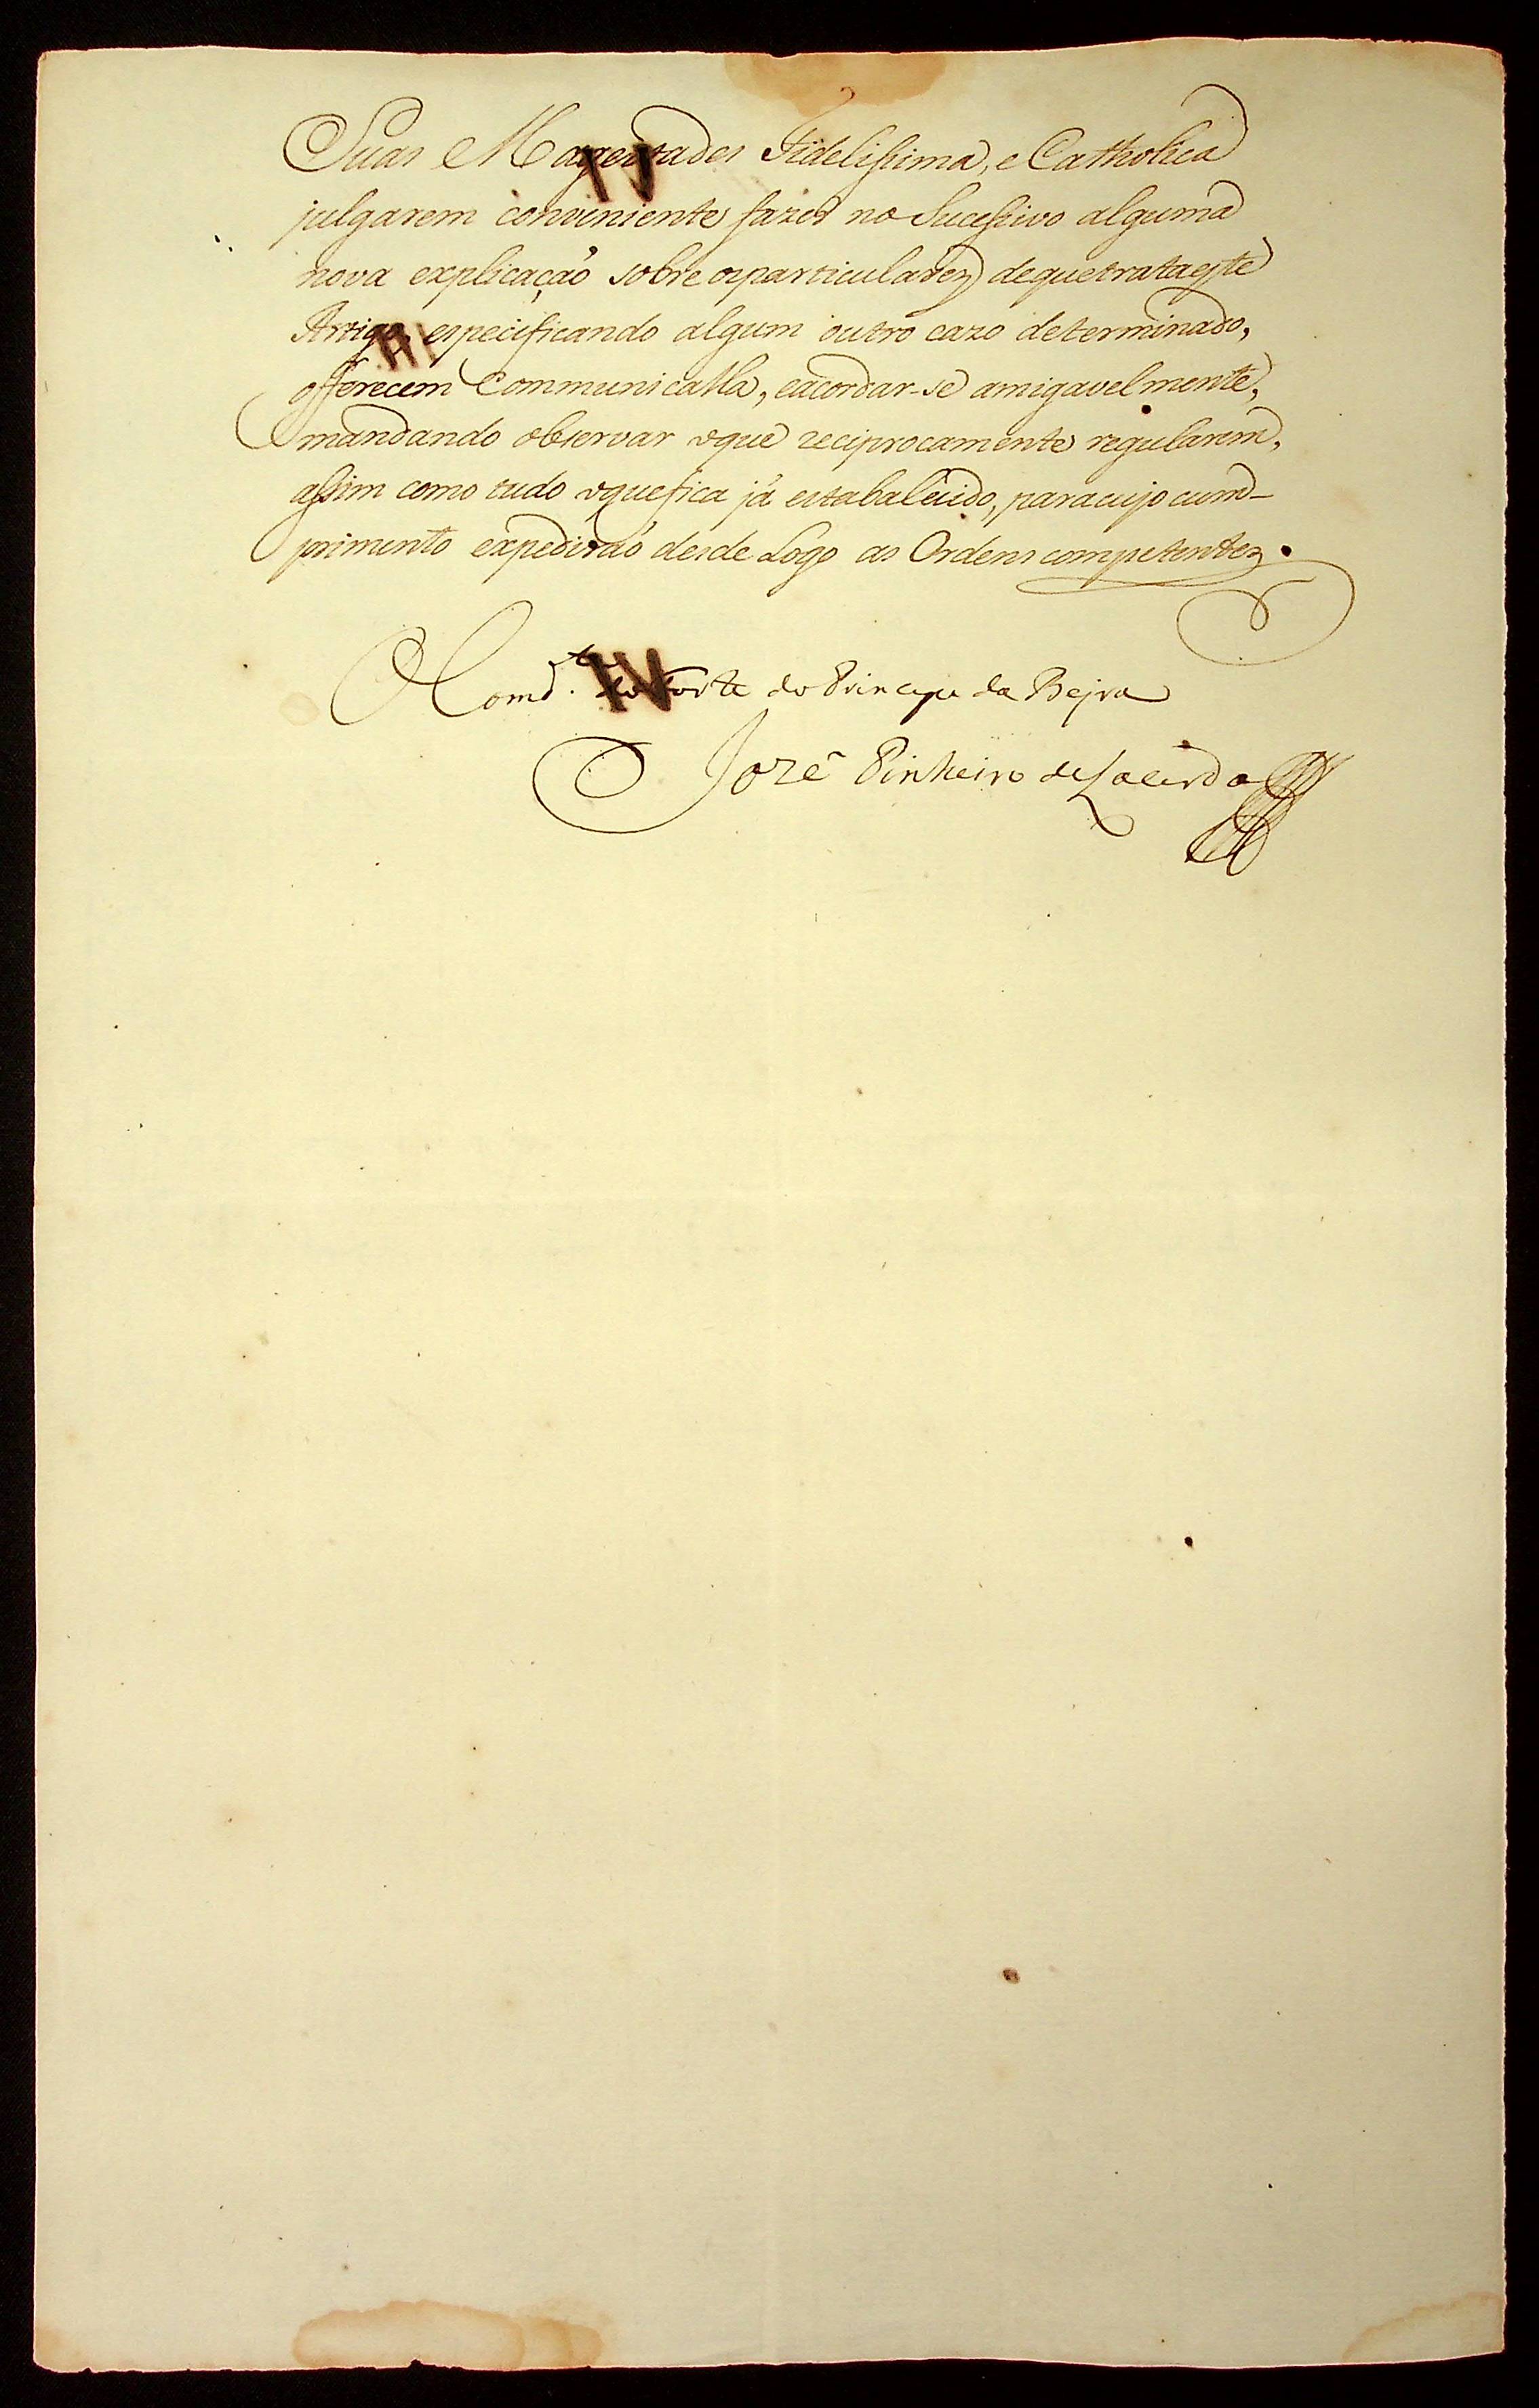 Suas Magestades Fidelissima, e Catholica
julgarem conveniente fazer no Sucessivo alguma
nova explicação sobre osparticularez dequetrataeste
Artigo, especificando algum outro cazo determinado,
offerecem Communicalla, eacordar-se amigavelmente,
mandando observar oque reciprocamente regularem,
assim como tudo oquefica já estabalecido, paracujo cum-
primento expedirão desde Logo as Ordens competentez.
O Comd.te do Forte do Principe da Bejra
Jozé Pinheiro deLacerda